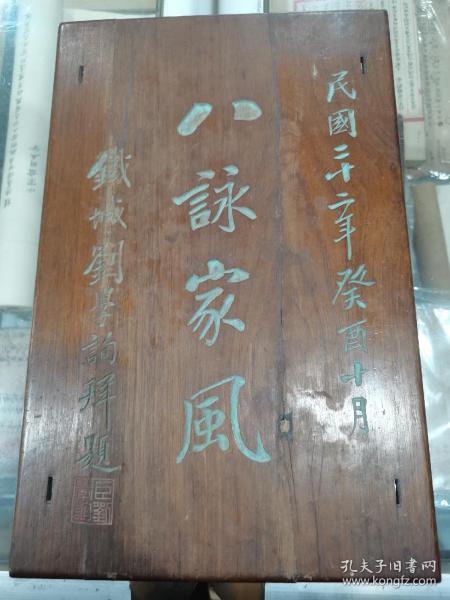 民國二十二年癸酉十月
八詠家風
鐵城劉學詢拜題
孔夫子旧书网
www.kongfz.com